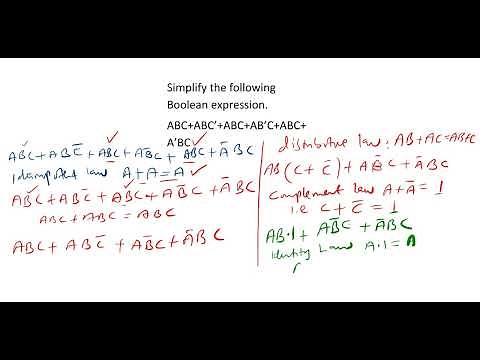 Simplify the following
Boolean expression.
ABC+ABC'+ABC+AB'C+ABC+
A'BC
ABC + ABC̅ + ABC + AB̅C + ABC + A̅BC
Idempotent law A+A=A
ABC + ABC̅ + ABC + AB̅C + A̅BC
ABC + ABC = ABC
ABC + ABC̅ + AB̅C + A̅BC
distributive law: AB+AC=AB+C
AB(C+C̅) + AB̅C + A̅BC
Complement law A+A̅=1
i.e C+C̅=1
AB.1 + AB̅C + A̅BC
Identity Law A.1=A